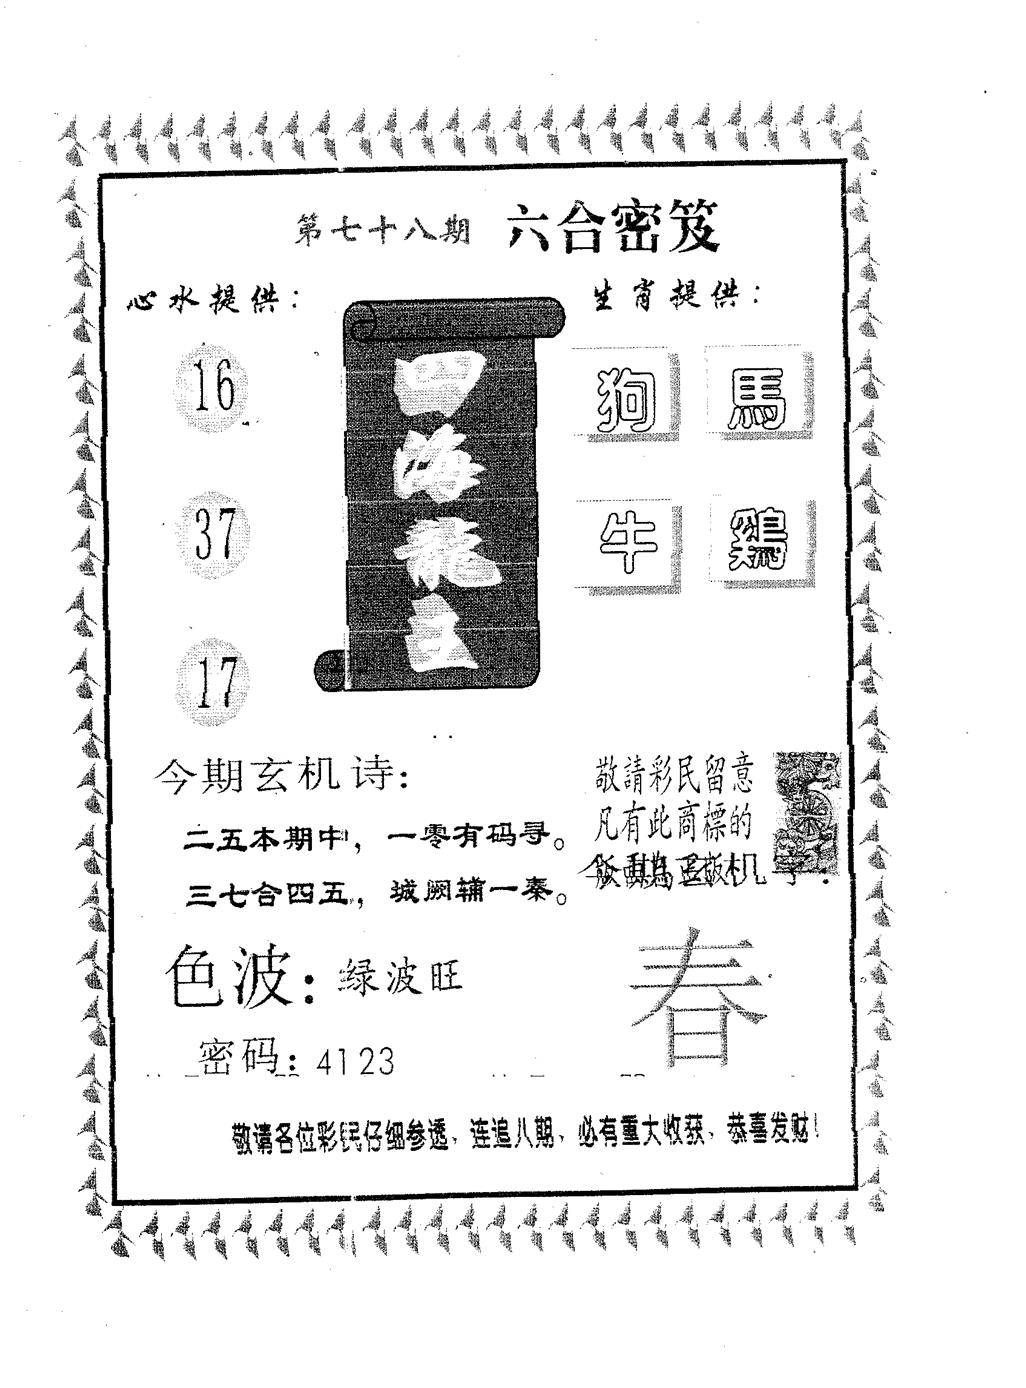 第七十八期 六合密笈
心水提供：
生肖提供：
16
37
17
四海龍王
狗 馬
牛 鷄
今期玄机诗：
二五本期中，一零有码寻。
三七合四五，城阙辅一秦。
敬請彩民留意
凡有此商標的
春
色波：绿波旺
密码：4123
敬请各位彩民仔细参透、连追八期、必有重大收获、恭喜发财！